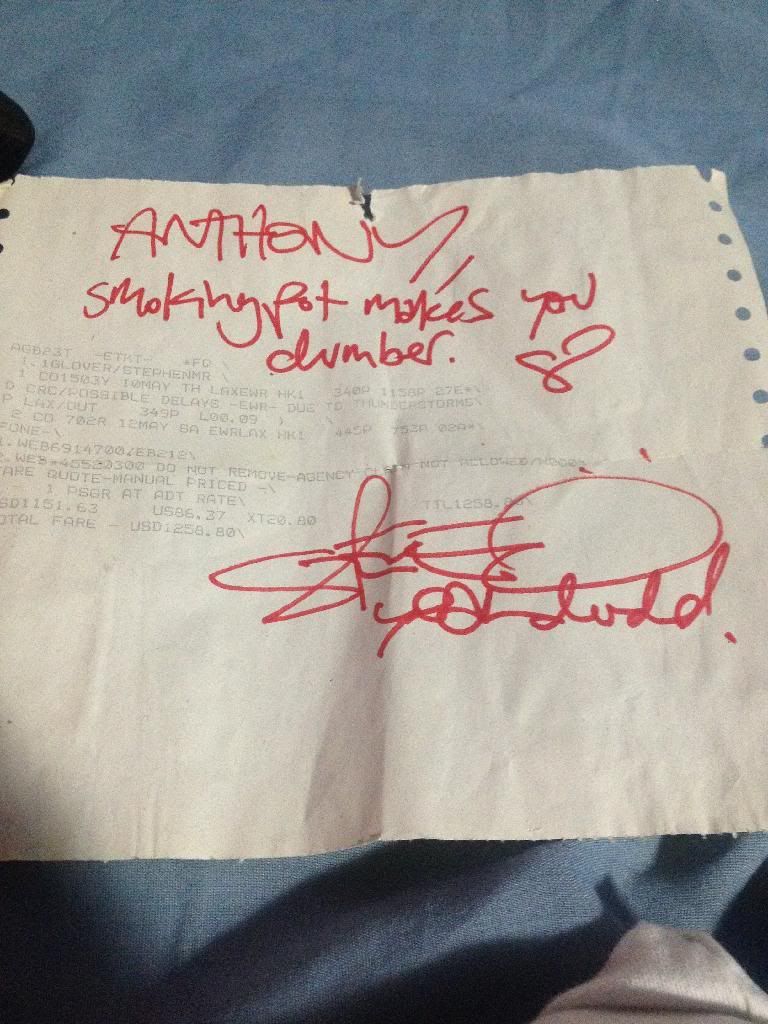 ANTHONY,
smoking pot makes you
dumber.
AGB23T -ETKT- *FQ \
1.1GLOVER/STEPHENMR
1 CO1503Y 10MAY TH LAXEWR HK1 340P 1158P 27E*\
D CRC/POSSIBLE DELAYS -EWR- DUE TO THUNDERSTORMS\
P LAX/OUT 349P L00.09 ) \
2 CO 702R 12MAY SA EWRLAX HK1 445P 753P 02A*\
FONE-\
1.WEB6914700/EB212\
2.WEB*45520300 DO NOT REMOVE-AGENCY NOT ALLOWED
FARE QUOTE-MANUAL PRICED -\
1 PSGR AT ADT RATE\
SD1151.63 US86.37 XT20.80 TTL1258.80\
OTAL FARE - USD1258.80\
yeah dude.